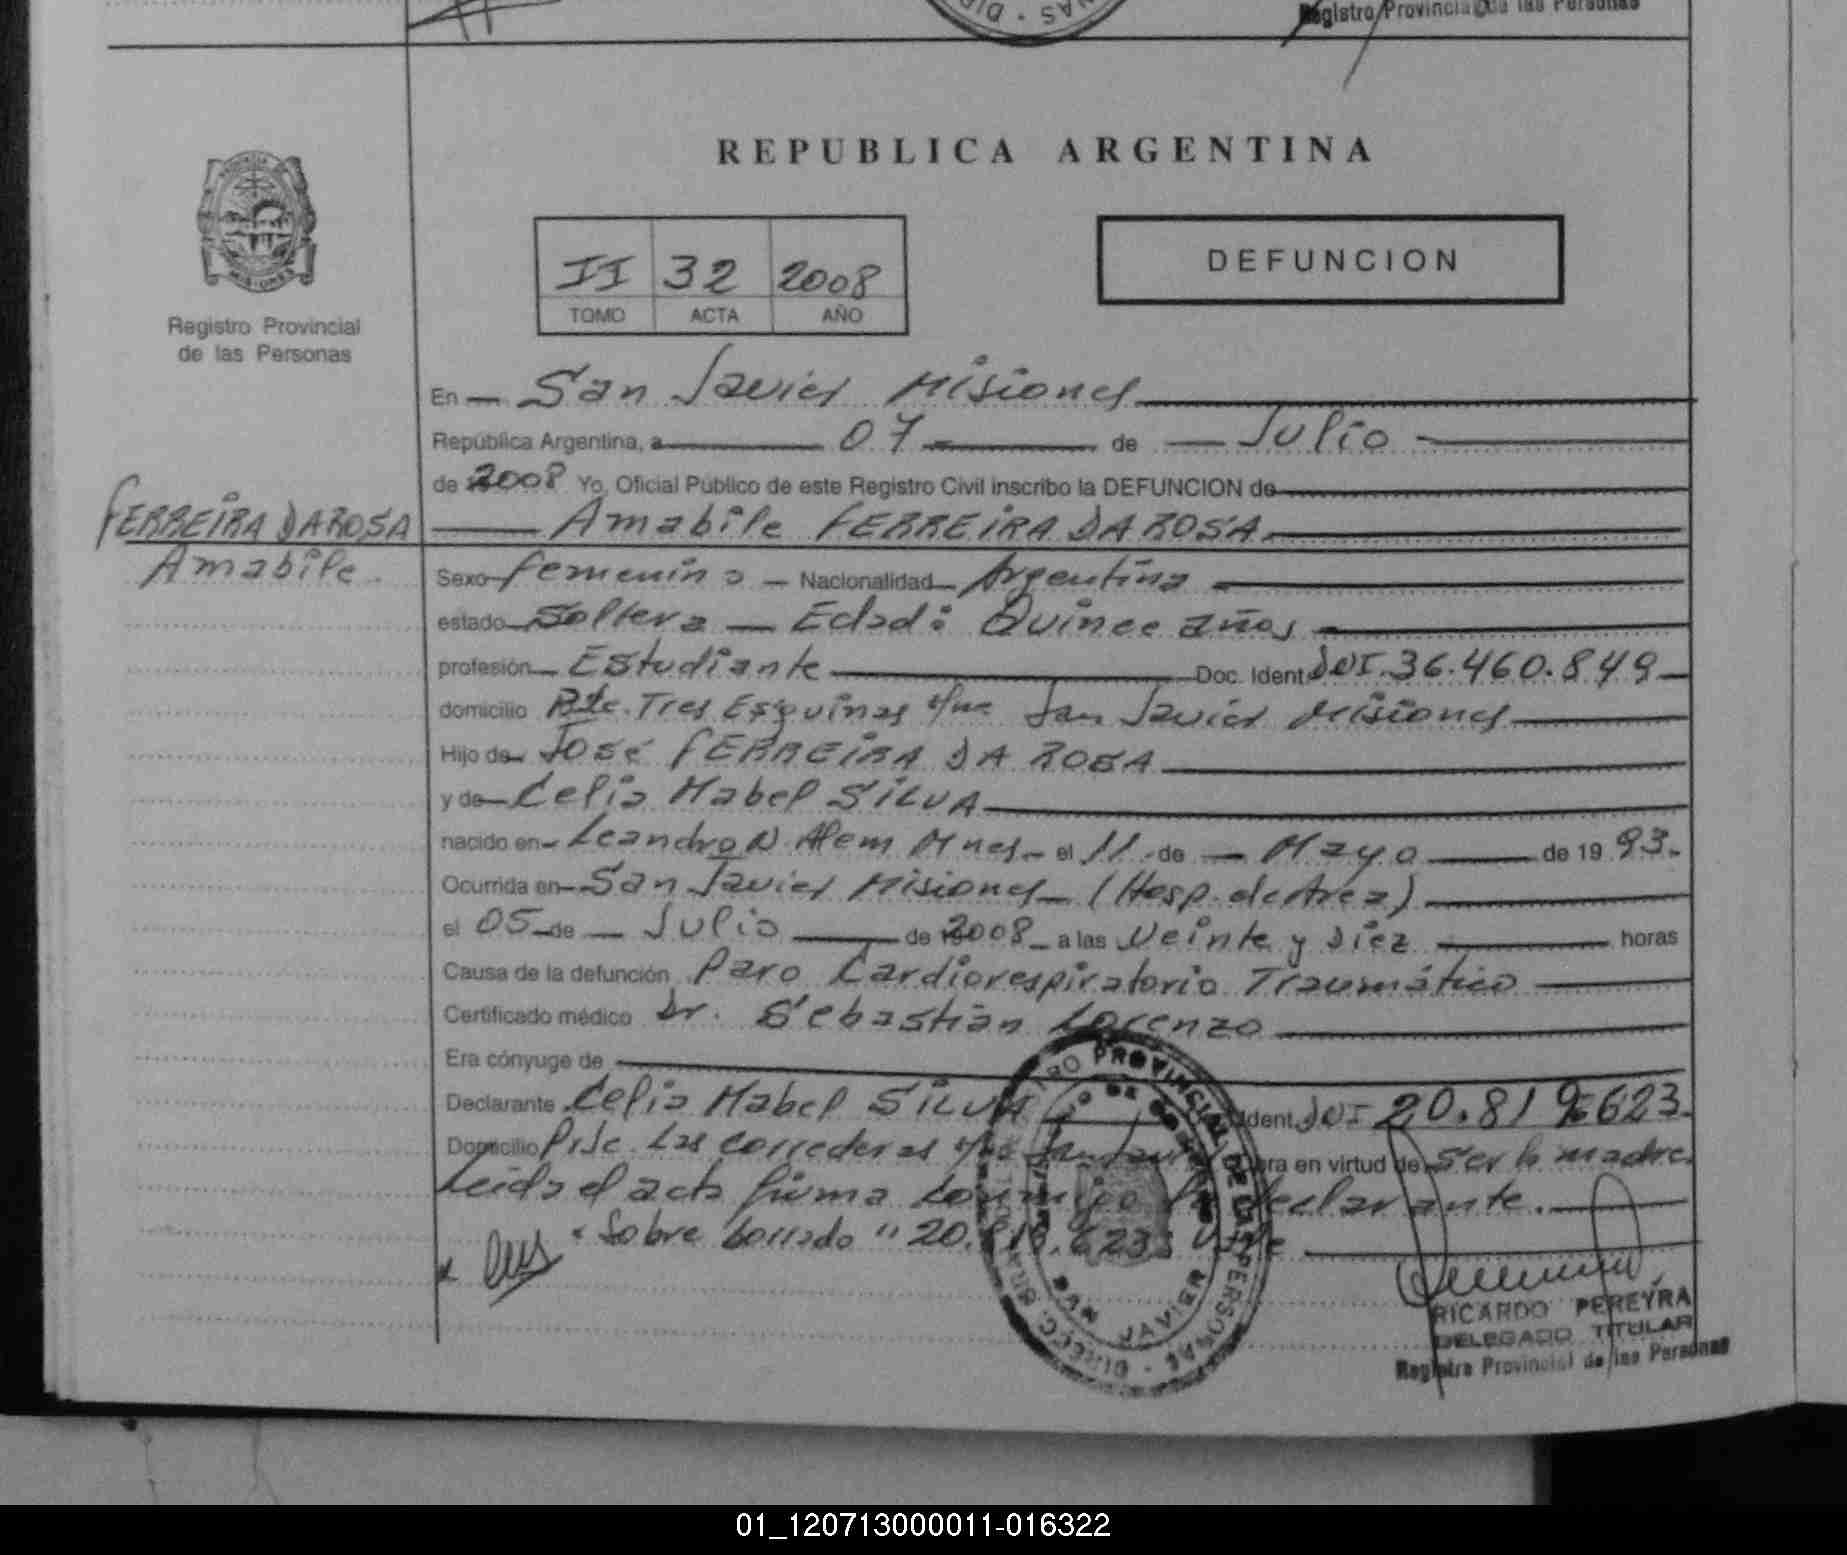 Registro Provincial de las Personas
REPUBLICA ARGENTINA
II 32 2008
TOMO ACTA AÑO
DEFUNCION
Registro Provincial
de las Personas
En San Javier Misiones
República Argentina, a 07 de Julio
de 2008 Yo, Oficial Público de este Registro Civil inscribo la DEFUNCION de
FERREIRA DA ROSA
Amabile.
Amabile FERREIRA DA ROSA.
Sexo femenino - Nacionalidad Argentina
estado Soltera - Edad: Quince años
profesión Estudiante Doc. Ident. DNI. 36.460.849
domicilio Pje. Tres Esquinas s/n San Javier Misiones
Hijo de José FERREIRA DA ROSA
y de Celia Mabel SILVA
nacido en Leandro N. Alem Mnes - el 11 de Mayo de 1993.
Ocurrida en San Javier Misiones - (Hosp. de Area)
el 05 de Julio de 2008 - a las Veinte y Diez horas
Causa de la defunción Paro Cardiorespiratorio Traumático
Certificado médico Dr. Sebastián Lorenzo
Era cónyuge de
Declarante Celia Mabel SILVA Ident. DNI 20.819.623.
Domicilio Pje. Las correderas San Javier obra en virtud de Ser la madre.
Leida el acta firma conmigo la declarante.
"Sobre borrado "20.819.623: Vale
RICARDO PEREYRA
DELEGADO TITULAR
Registro Provincial de las Personas
01_120713000011-016322